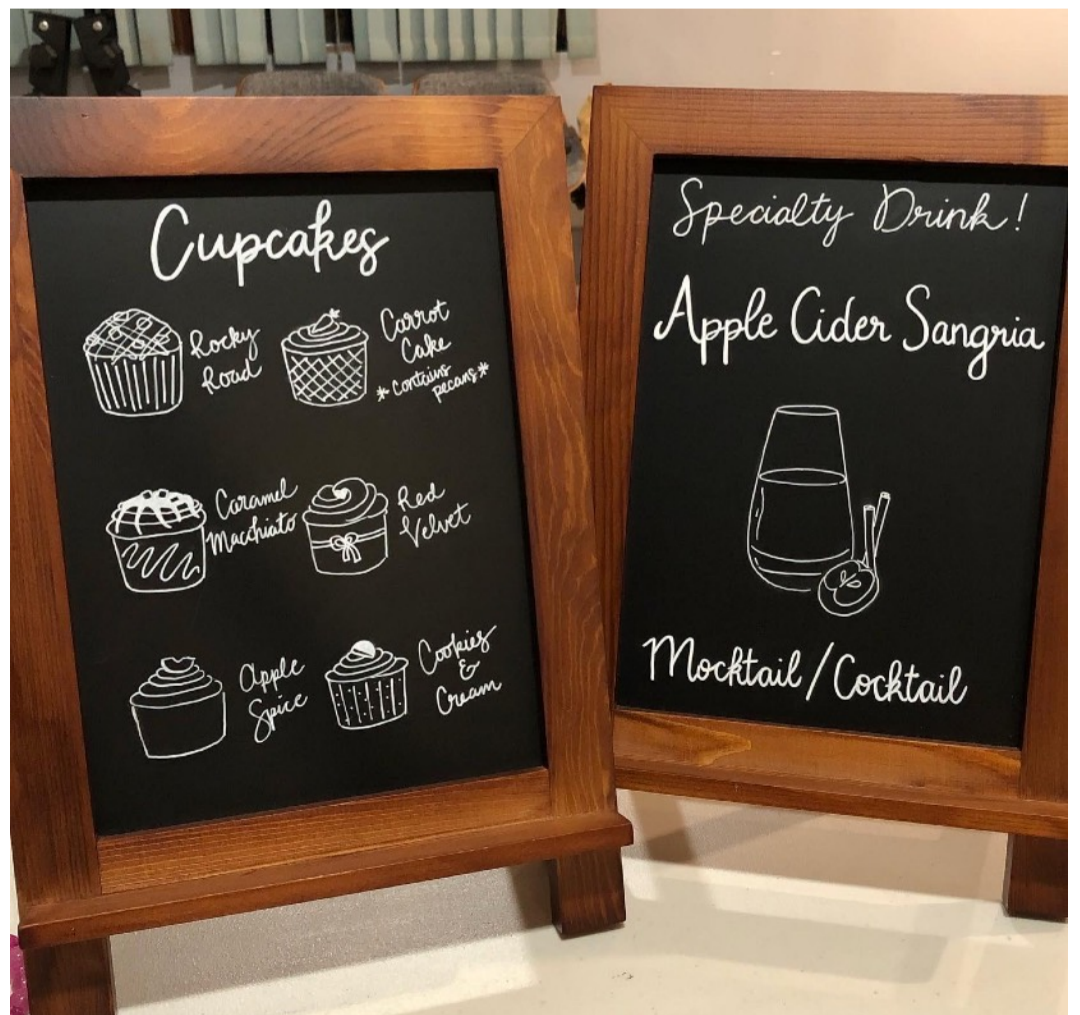 Cupcakes
Rocky
Road
Carrot
Cake
*contains
pecans*
Caramel
Macchiato
Red
Velvet
Apple
Spice
Cookies
&
Cream
Specialty Drink!
Apple Cider Sangria
Mocktail/Cocktail